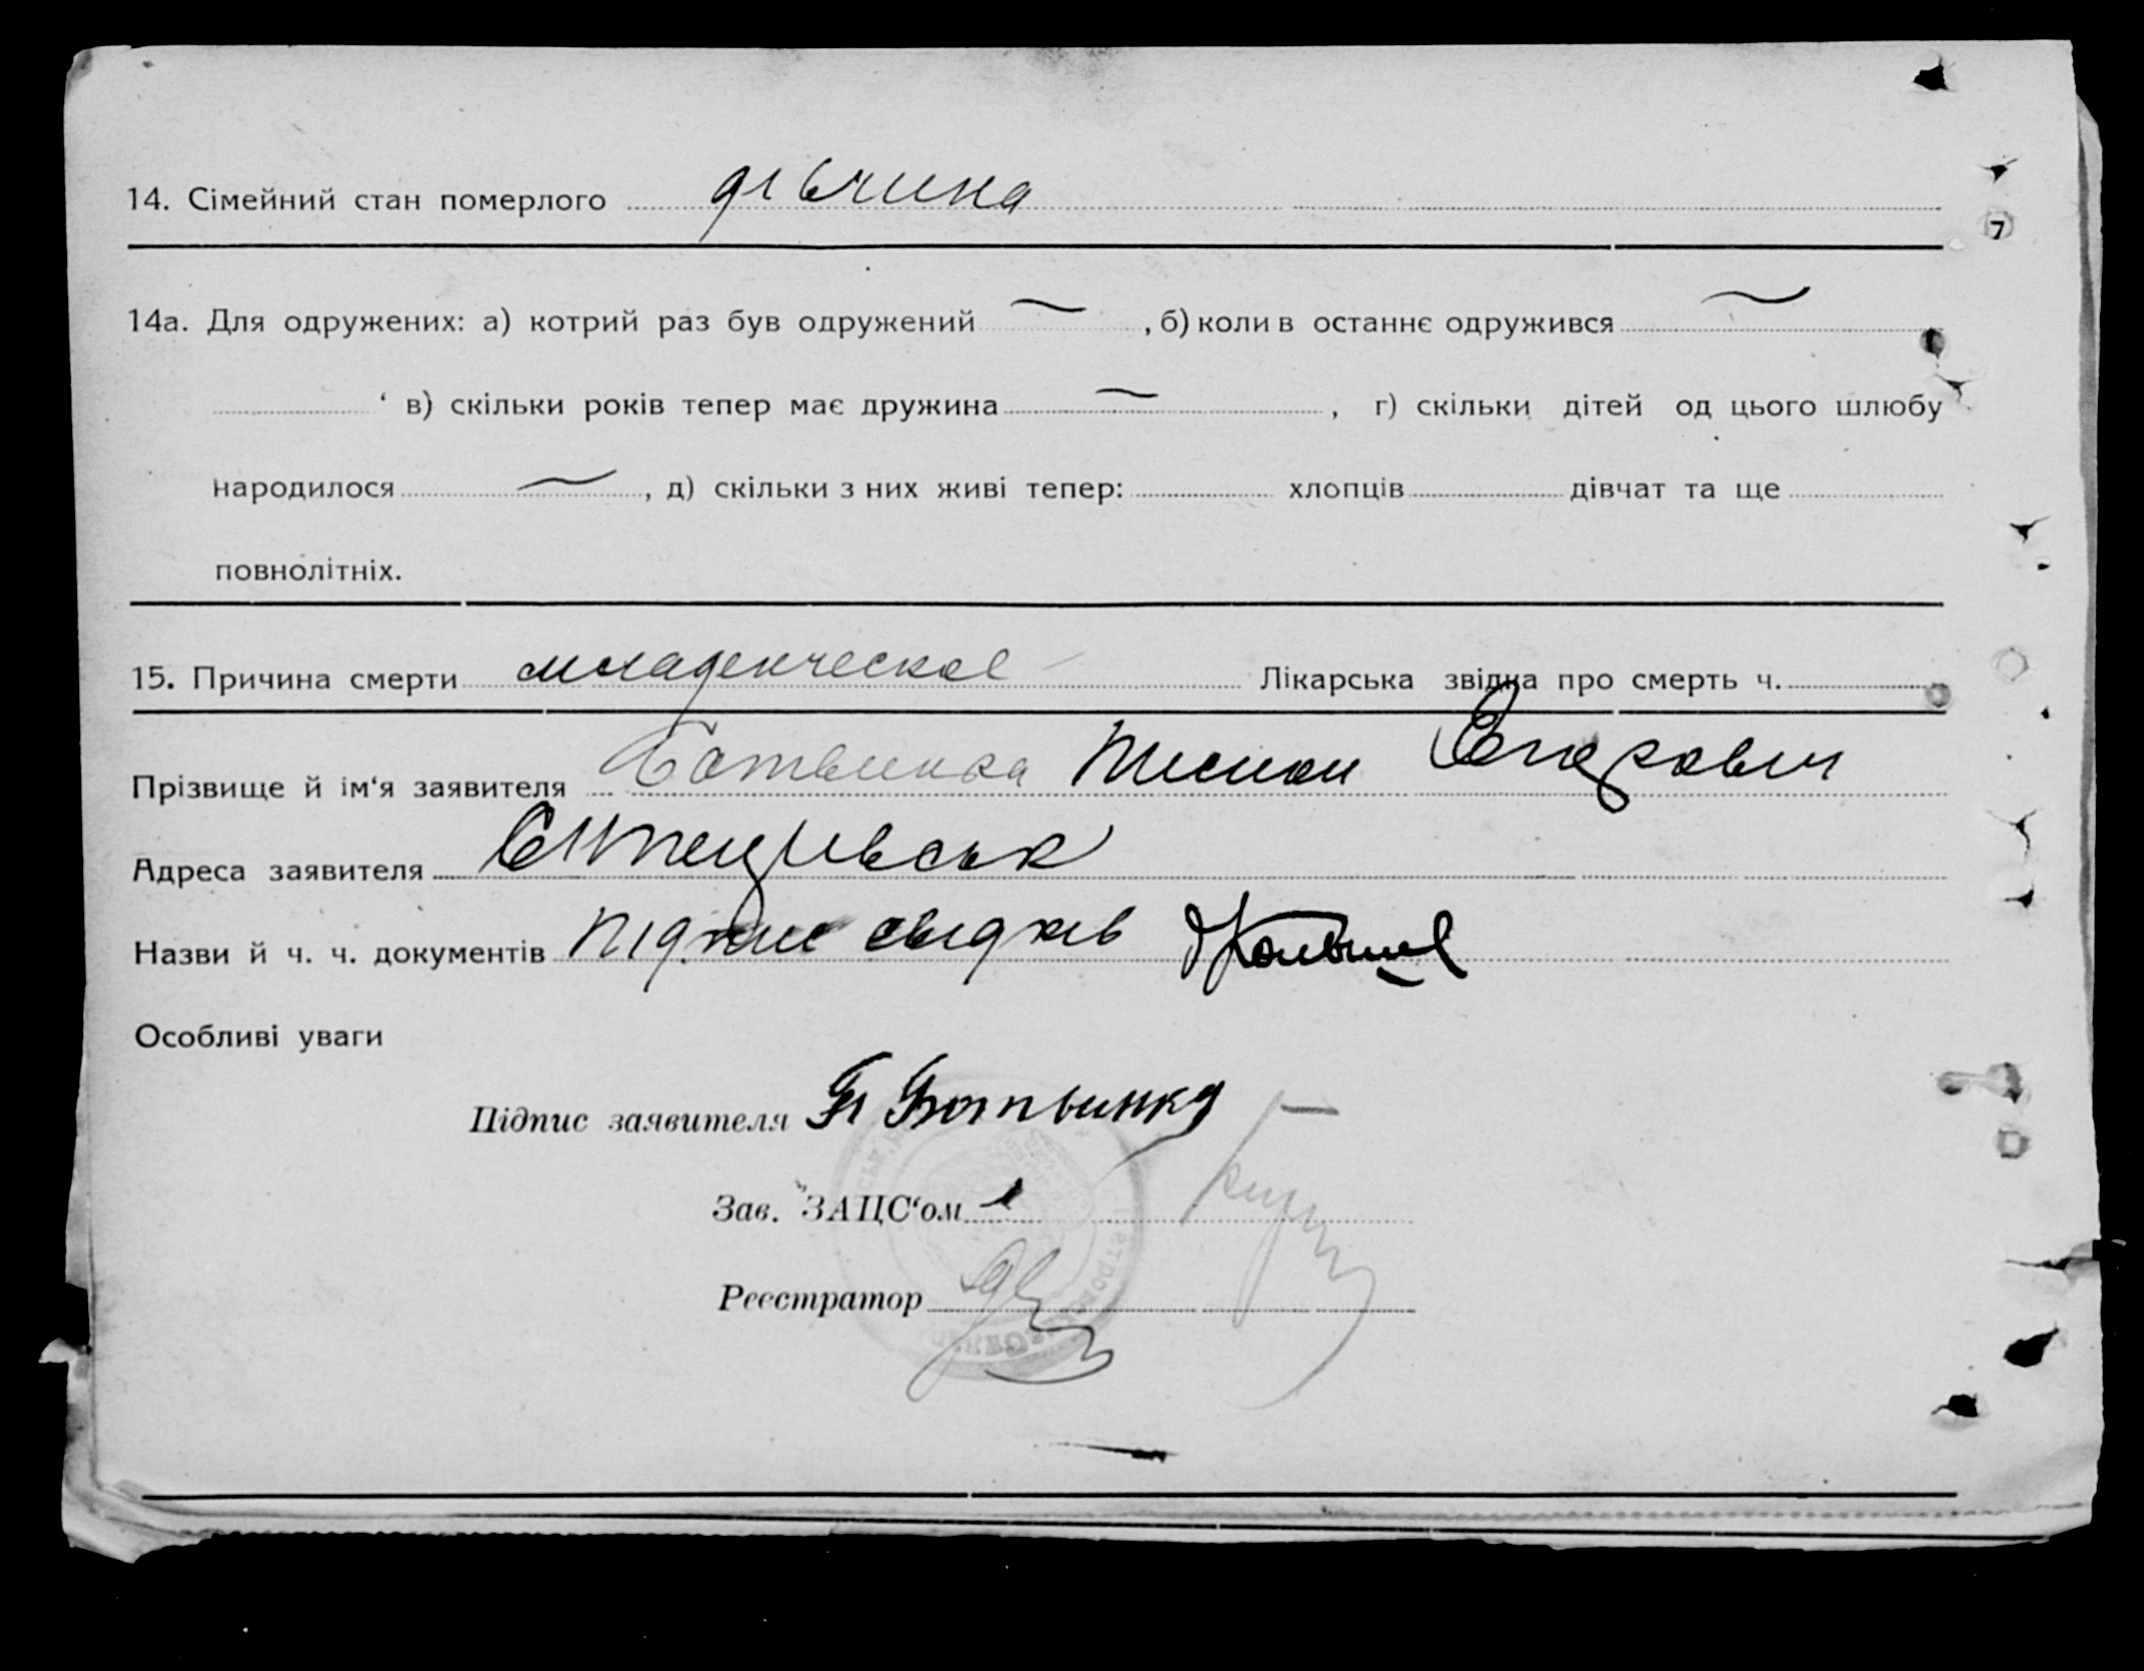 14. Сімейний стан померлого дівчина
7
14а. Для одружених: а) котрий раз був одружений , б) коли в останнє одружився
в) скільки років тепер має дружина , г) скільки дітей од цього шлюбу
народилося , д) скільки з них живі тепер: хлопців дівчат та ще
повнолітніх.
15. Причина смерти младенческое Лікарська звідка про смерть ч.
Прізвище й ім‘я заявителя Ботвинка
Адреса заявителя
Назви й ч. ч. документів підпис свідків
Особливі уваги
Підпис заявителя Ботвинка
Зав. ЗАЦС‘ом
Реєстратор